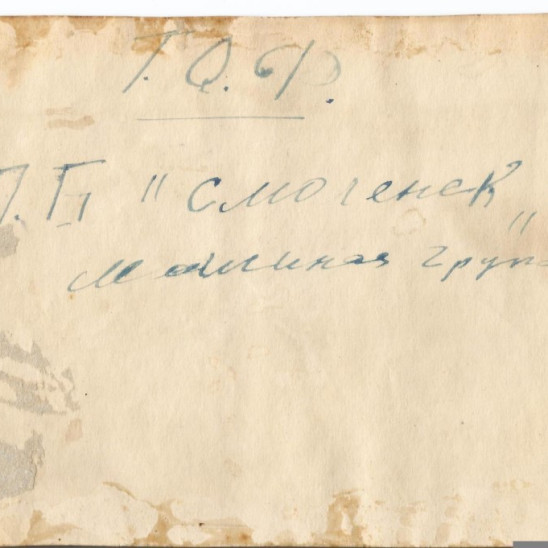 Т.О.Ф.
П.Б. "Смоленск"
Машинная груп